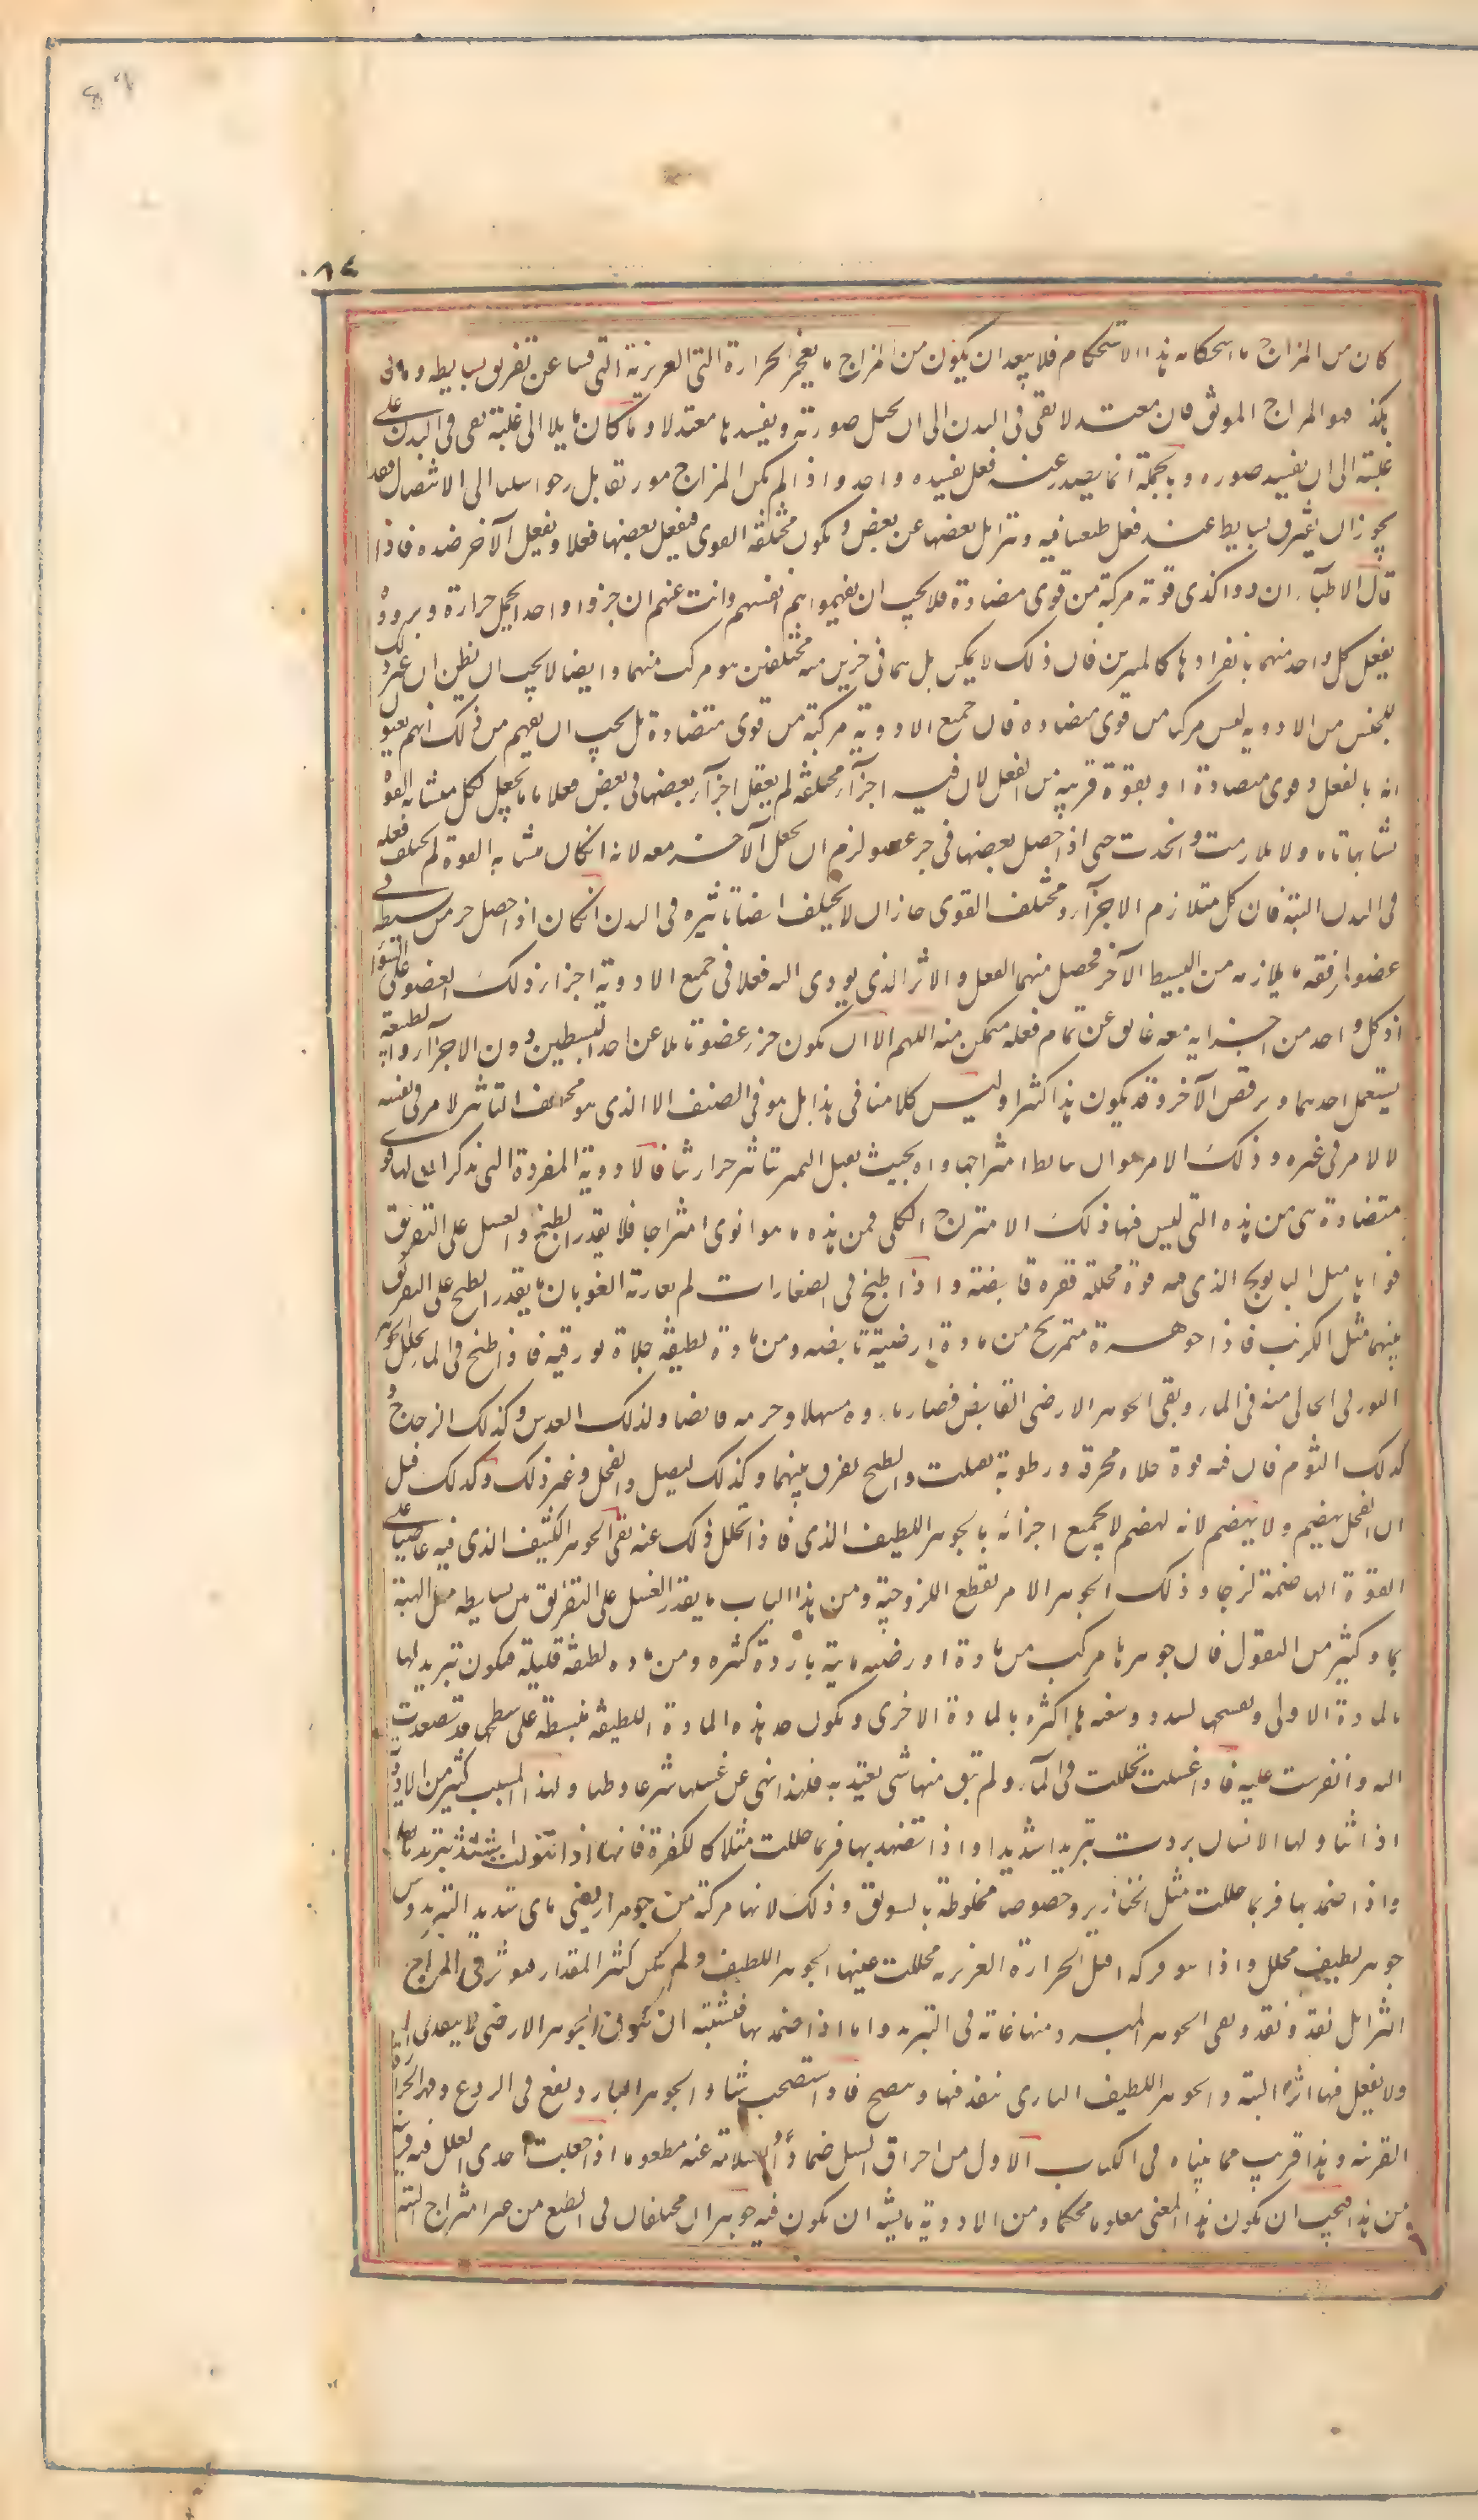 ٠٨٤
كان من المزاج ما استحكامه هذا الاستحكام فلا يبعد ان يكون من المزاج ما يعجز الحرارة التي الغريزية التي فينا عن تفريق بسايطه وما كان
هكذا فهو المزاج الموثق فان معتدلا بقي في البدن الى ان يحيل صورته ويفسدها معتدلا وما كان مايلا الى غلبة بقي في البدن على
غلبته الى ان يفسد صوره وبالجملة انما يصدر عنه فعل واحد واذا لم يكن المزاج الى الانفصال فقد
يجوز ان يفترق بسايطه عند فعل طبعنا فيه وتتزايل بعضها عن بعض ويكون مختلفة القوى فيفعل بعضها فعلا ويفعل الآخر ضده فاذا
قال الاطباء ان دواء كذى قوته مركبة من قوى متضادة فلا يجب ان يفهموا هم انفسهم وانت عنهم ان جزوا واحدا يحمل حرارة وبرودة
يفعل كل واحد منهما بانفرادها كالمتميزين فان ذلك لا يمكن بل هما في جزءين منه مختلفين هو مركب منهما وايضا لا يجب ان يظن ان غير ذلك
الجنس من الادويه ليس مركبا من قوى متضاده فان جميع الادوية مركبة من قوى متضادة بل يجب ان يفهم من ذلك انهم يعنون
انه بالفعل ذو قوى متضادة او بقوة قريبه من الفعل لان فيه اجزاء مختلفة لم يفعل اجزاء بعضها في بعض فعلا تاما يجعل الكل متشابه القوة
تشابها تاما ولا تلازمت واتحدت حتى اذا حصل بعضها في جزء عضو لزم ان يحصل الآخر معه لانه ان كان متشابه القوة لم يختلف فعله
في البدن البتة فان كان متلازم الاجزاء ومختلف القوى جاز ان لا يختلف ايضا تاثيره في البدن ان كان اذا حصل جزء من بسيط في
عضو رافقه ما يلازمه من البسيط الآخر فحصل منهما الفعل والاثر الذي يودى اليه فعلاهما في جميع اجزاء ذلك العضو على السواء
اذ كل واحد من اجزايه معه عايق عن تمام فعله متمكن منه اللهم الا ان يكون جزء عضو قابلا عن احد البسيطين دون الآخر او الطبيعة
يستعمل احدهما ويرفض الآخر وقد يكون هذا كثيرا وليس كلامنا في هذا بل هو في الصنف الذي هو مختلف التاثير لامر في نفسه
لا لامر في غيره وذلك الامر هو ان بسايطه امتزاجها واه بحيث يقبل التميز بتاثير حرارتنا فالادوية المفردة التي نذكر ان لها قوى
متضادة هي من هذه التي ليس فيها ذلك الامتزاج الكلي فمن هذه ما هو اقوى امتزاجا فلا يقدر الطبخ والغسل على التفريق
بين قواها مثل البابونج الذي فيه قوة محللة وقوة قابضة واذا طبخ في الضمادات لم يفارقه القوتان ما يقدر الطبخ على التفريق
بينهما مثل الكرنب فان جوهره ممتزج من مادة ارضية قابضه ومن مادة لطيفة جلاءة بورقيه فاذا طبخ في الماء تحلل الجوهر
البورقي الجالي منه في الماء وبقي الجوهر الارضي القابض فصار ماؤه مسهلا وجرمه قابضا وكذلك العدس وكذلك الدجاج و
كذلك الثوم فان فيه قوة جلاءه محرقة ورطوبة ثقيلة والطبخ يفرق بينهما وكذلك البصل والفجل وغير ذلك وكذلك قيل
ان الفجل يهضم ولا ينهضم لانه يهضم لا بجميع اجزائه بل بالجوهر اللطيف الذي فيه فاذا تحلل ذلك عنه بقي الجوهر الكثيف الذي فيه عاصيا على
القوة الهاضمة لزجا وذلك الجوهر الآخر يقطع اللزوجة ومن هذا الباب ما يقدر الغسل على التفريق بين بسايطه مثل الهندبا
وكثير من البقول فان جوهرها مركب من مادة ارضيه مايية باردة كثيره ومن ماده لطيفه قليله فيكون تبريدها
بالمادة الاولى وتفتيحها السدد وتنفيذها اكثره بالمادة الاخرى ويكون جل هذه المادة اللطيفة منبسطة على سطحها قد تصعدت
اليه وانفرشت عليه فاذا غسلت تحللت في الماء ولم يبق منها شي يعتد به فلهذا نهى عن غسلها شرعا وطبا ولهذا السبب كثير من الادوية
اذا تناولها الانسان بردت تبريدا شديدا واذا تضمد بها فربما حللت مثلا كالكزبرة فانها اذا تنولت اشتد تبريدها
واذا ضمد بها فربما حللت مثل الخنازير وخصوصا مخلوطة بالسويق وذلك لانها مركبة من جوهر ارضي مائي شديد التبريد ومن
جوهر لطيف محلل واذا تنولت اقبل الحرارة الغريزيه فحللت عنها الجوهر اللطيف ولم يكن كثير المقدار فيوثر في المزاج
اثرا بل نفذ ونفد وبقي الجوهر المبرد منها غاية في التبريد واما اذا ضمد بها فيشبه ان يكون الجوهر الارضي لا ينفذ في المسام
ولا يفعل فيها اثره البتة والجوهر اللطيف الناري ينفذ فيها وينضج فاذا استصحب شيئا من الجوهر البارد نفع في الردع وقهر الحرارة
الغريبه وهذا قريب مما بيناه في الكتاب الاول من احراق البصل ضمادا والسلامة عنه مطعوما اذ جعلت احدى العلل فيه قريبة
من هذا فيجب ان يكون هذا المعنى معلوما محكما ومن الادوية ما يشبه ان يكون فيه جوهران مختلفان في الطبع من غير امتزاج البتة